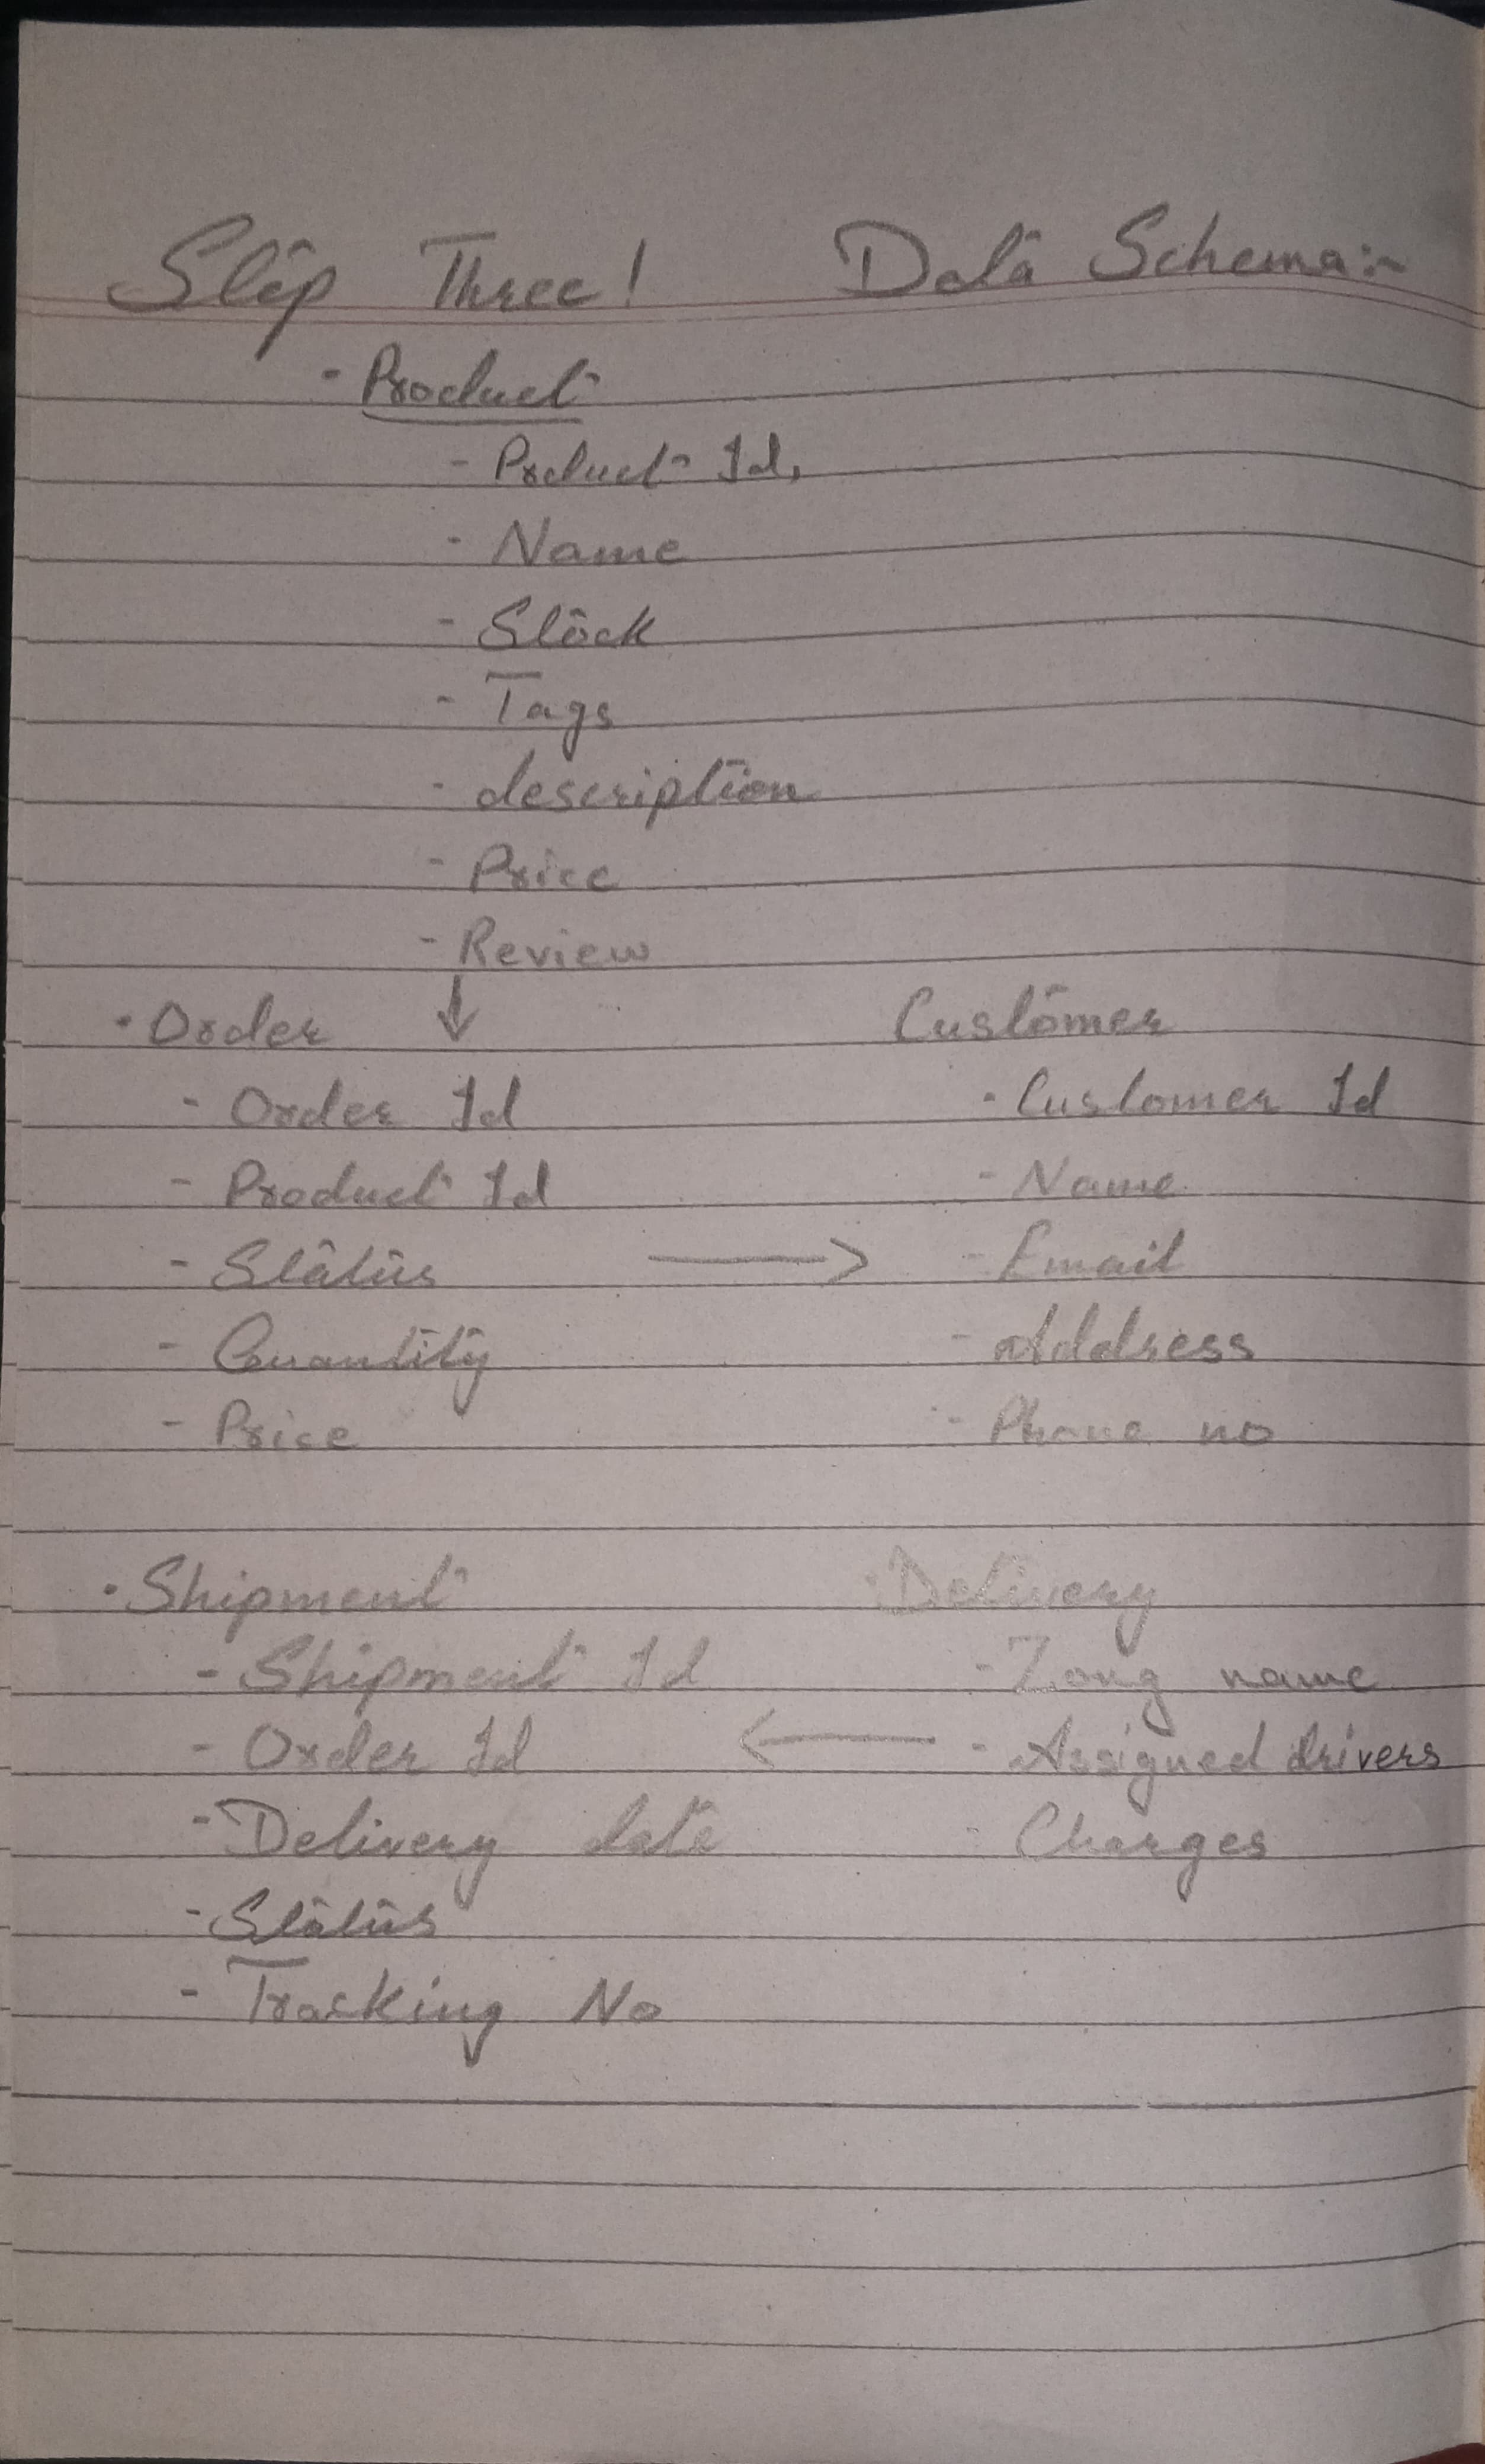 Step Three! Data Schema:-
• Product
- Product Id,
- Name
- Stock
- Tags
- description
- Price
- Review
• Order
- Order Id
- Product Id
- Status
- Quantity
- Price
Customer
- Customer Id
- Name
- Email
- Address
- Phone no
• Shipment
- Shipment Id
- Order Id
- Delivery date
- Status
- Tracking No
• Delivery
- Zong name
- Assigned drivers
- Charges